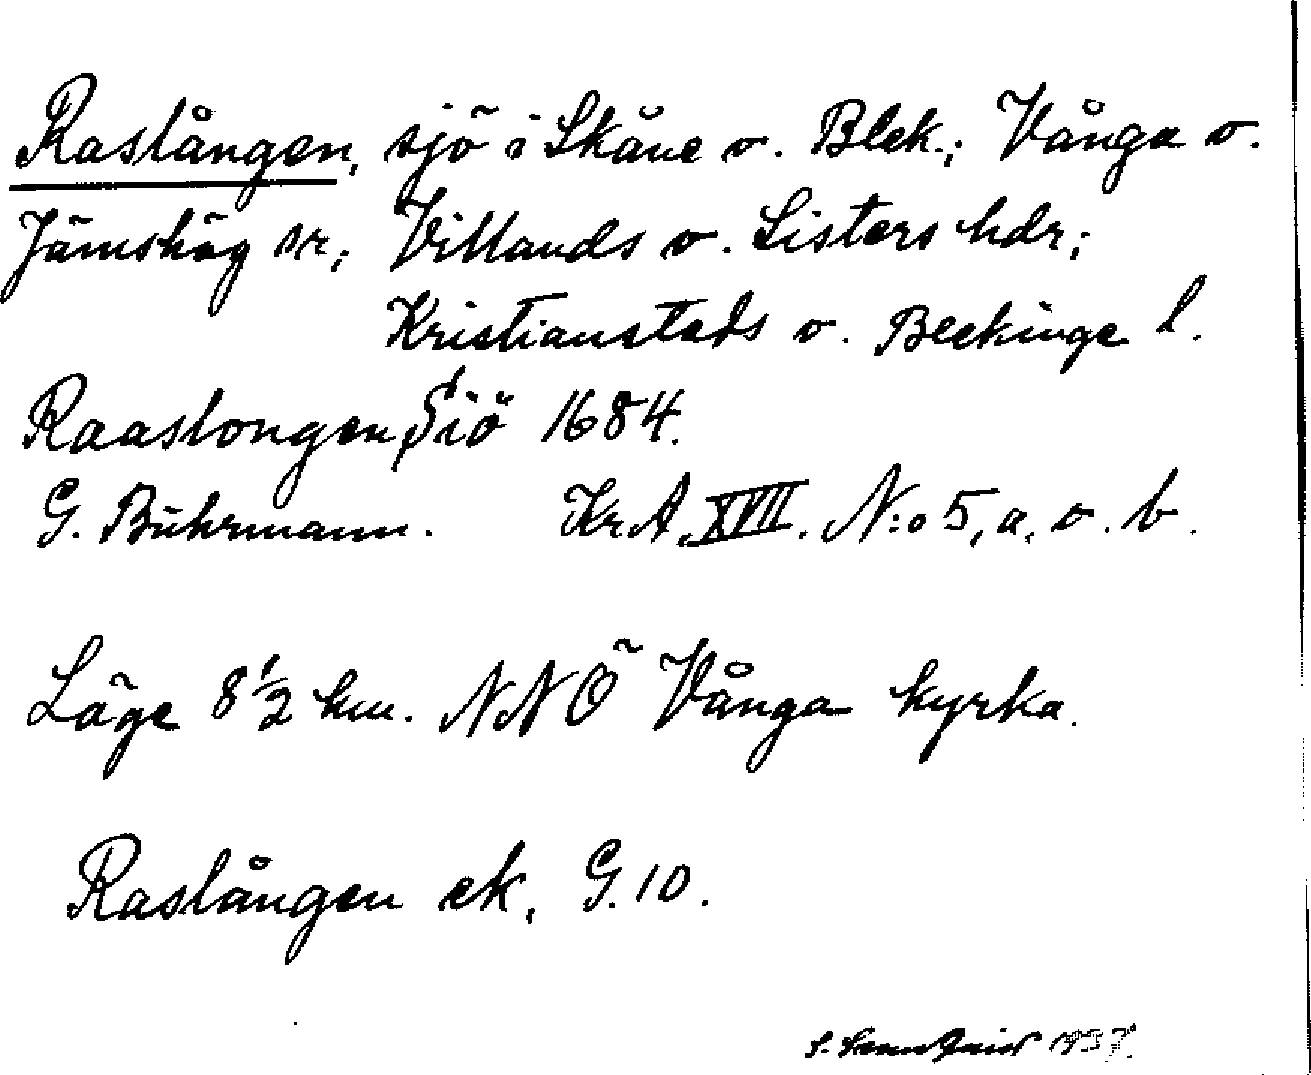 Raslången, sjö i Skåne o. Blek.; Vånga o.
Jämshög sn; Villands o. Listers hdr;
Kristianstads o. Blekinge l.
Raaslongen Siö 1684.
G. Buhrmann. KrA. XVII. N:o 5, a. o. b.
Läge 8 1/2 km. NNÖ Vånga kyrka.
Raslången ek. G. 10.
1937.